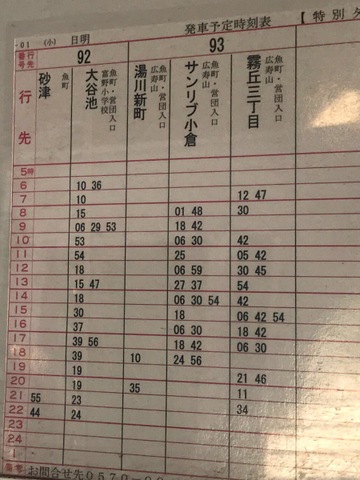 発車予定時刻表 【特別
01 (小) 日明
行先番号 92 93
行先
砂津 魚町
大谷池 魚町・営団入口 富野小学校
湯川新町 魚町・営団入口 広寿山
サンリブ小倉 魚町・営団入口 広寿山
霧丘三丁目 魚町・営団入口 広寿山
5時
6 10 36
7 10 12 47
8 15 01 48 30
9 06 29 53 18 42
10 53 06 30 42
11 54 25 05 42
12 18 06 59 30 45
13 15 47 27 37 54
14 18 06 30 54 42
15 30 18 06 42 54
16 37 06 30 18 42
17 39 56 18 42 06 30
18 39 10 24 56
19 19
20 19 35 21 46
21 55 23 11
22 44 24 34
23
24
1
備考 お問合せ先0570-00